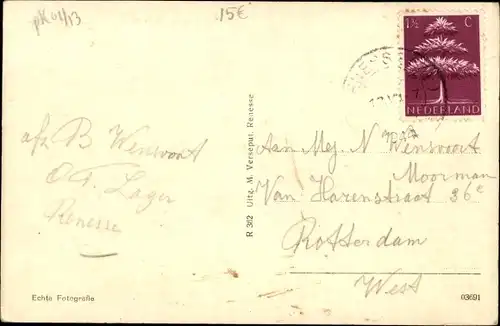 pk 01/13
15€
1½ C
NEDERLAND
1944
afz B Wensvoort
O.A. Lager
Renesse
R 362 Uitg. M. Verseput, Renesse
Aan Mej. N Wensvoort
Moorman
Van Harenstraat 36c
Rotterdam
West
Echte Fotografie
03691